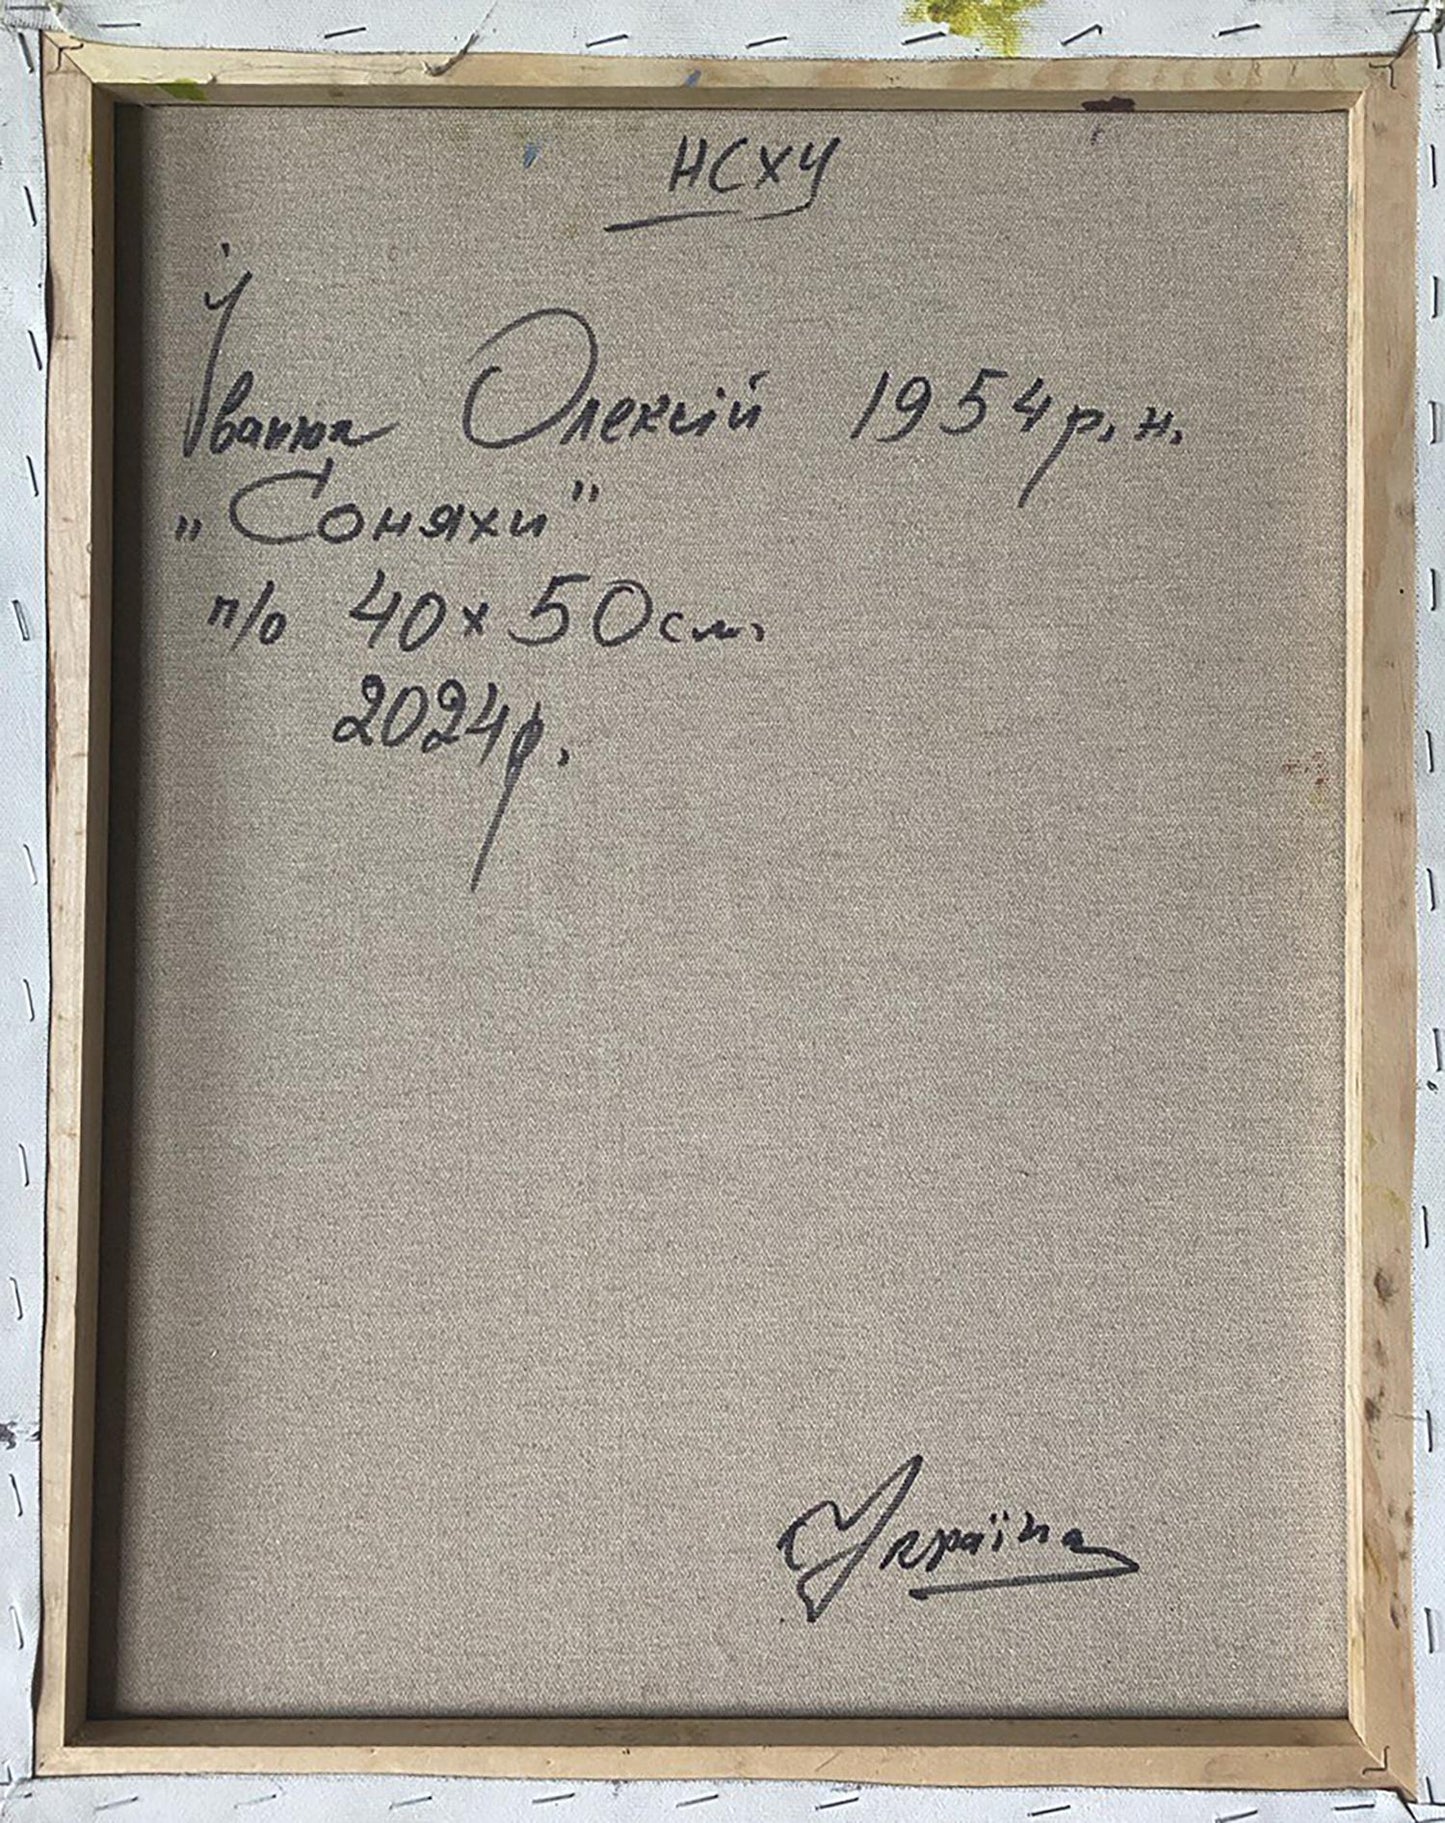 НСХУ
Іванюк Олексій 1954 р. н.
„Соняхи"
п/о 40 х 50 см.
2024 р.
Україна